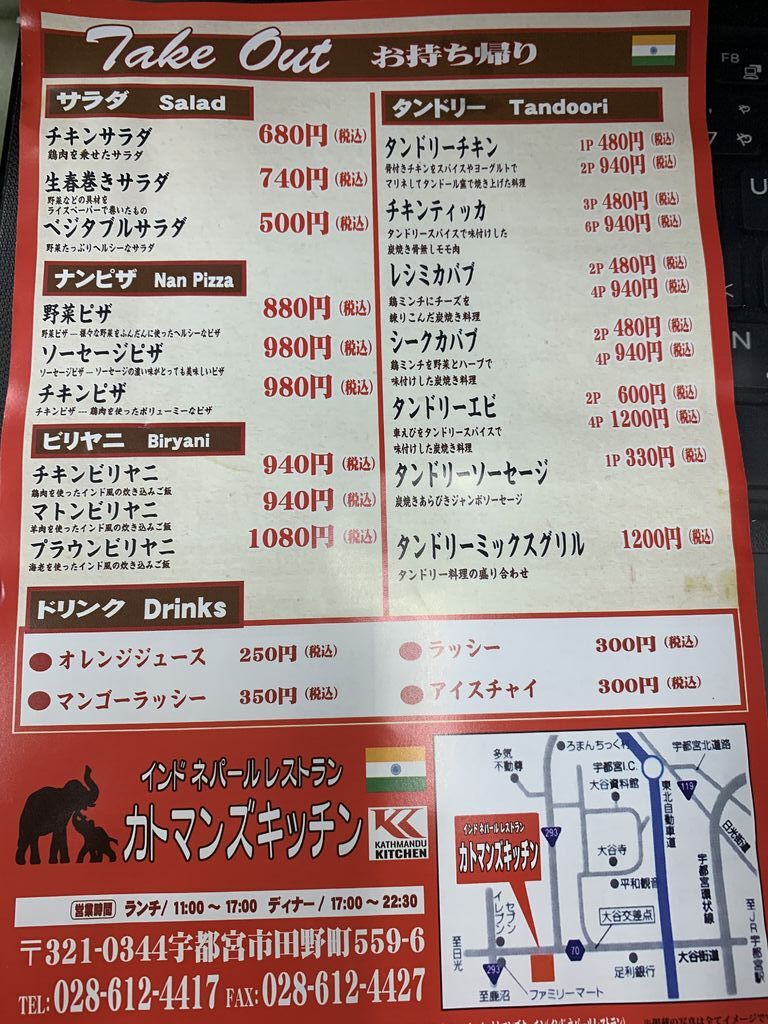 Take Out お持ち帰り
サラダ Salad
チキンサラダ 680円(税込)
鶏肉を乗せたサラダ
生春巻きサラダ 740円(税込)
野菜などの具材を
ライスペーパーで巻いたもの
ベジタブルサラダ 500円(税込)
野菜たっぷりヘルシーなサラダ
ナンピザ Nan Pizza
野菜ピザ 880円(税込)
野菜ピザ --- 様々な野菜をふんだんに使ったヘルシーなピザ
ソーセージピザ 980円(税込)
ソーセージピザ --- ソーセージの濃い味がとっても美味しいピザ
チキンピザ 980円(税込)
チキンピザ --- 鶏肉を使ったボリューミーなピザ
ビリヤニ Biryani
チキンビリヤニ 940円(税込)
鶏肉を使ったインド風の炊き込みご飯
マトンビリヤニ 940円(税込)
羊肉を使ったインド風の炊き込みご飯
プラウンビリヤニ 1080円(税込)
海老を使ったインド風の炊き込みご飯
タンドリー Tandoori
タンドリーチキン 1P 480円(税込)
骨付きチキンをスパイスやヨーグルトで 2P 940円(税込)
マリネしてタンドール窯で焼き上げた料理
チキンティッカ 3P 480円(税込)
タンドリースパイスで味付けした 6P 940円(税込)
炭焼き骨無しモモ肉
レシミカバブ 2P 480円(税込)
鶏ミンチにチーズを 4P 940円(税込)
練りこんだ炭焼き料理
シークカバブ 2P 480円(税込)
鶏ミンチを野菜とハーブで 4P 940円(税込)
味付けした炭焼き料理
タンドリーエビ 2P 600円(税込)
車えびをタンドリースパイスで 4P 1200円(税込)
味付けした炭焼き料理
タンドリーソーセージ 1P 330円(税込)
炭焼きあらびきジャンボソーセージ
タンドリーミックスグリル 1200円(税込)
タンドリー料理の盛り合わせ
ドリンク Drinks
オレンジジュース 250円(税込)
ラッシー 300円(税込)
マンゴーラッシー 350円(税込)
アイスチャイ 300円(税込)
インド ネパール レストラン
カトマンズキッチン
KATHMANDU
KITCHEN
営業時間 ランチ/ 11:00 ～ 17:00 ディナー/ 17:00 ～ 22:30
〒321-0344宇都宮市田野町559-6
TEL: 028-612-4417 FAX: 028-612-4427
多気
不動尊
ろまんちっく村
宇都宮I.C.
宇都宮北道路
大谷資料館
119
東北自動車道
日光街道
インド ネパール レストラン
カトマンズキッチン
293
大谷寺
平和観音
宇都宮環状線
セブン
イレブン
大谷交差点
至日光
70
大谷街道
至JR宇都宮駅
293
足利銀行
至鹿沼
ファミリーマート
F8
U
N